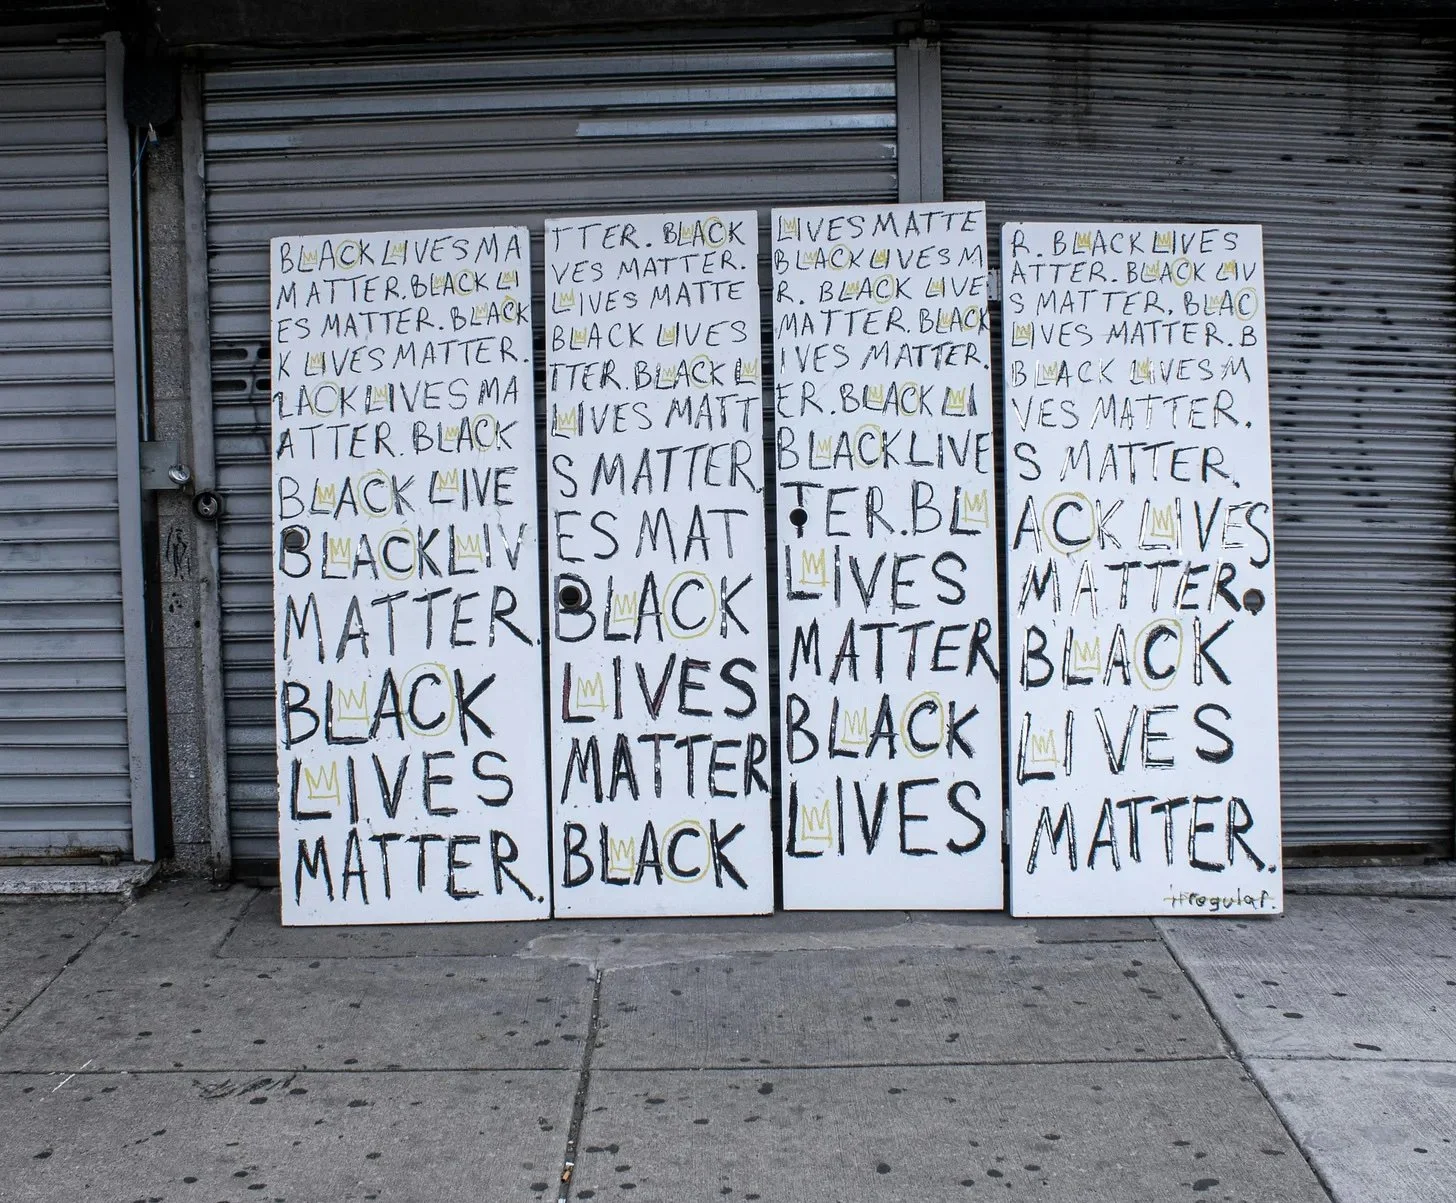 BLACK LIVES MA
MATTER. BLACK LI
ES MATTER. BLACK
K LIVES MATTER.
LACK LIVES MA
ATTER. BLACK
BLACK LIVE
BLACK LIV
MATTER.
BLACK
LIVES
MATTER.
TTER. BLACK
VES MATTER.
LIVES MATTE
BLACK LIVES
TTER. BLACK L
LIVES MATT
S MATTER.
ES MAT
BLACK
LIVES
MATTER
BLACK
LIVES MATTE
BLACK LIVES M
R. BLACK LIVE
MATTER. BLACK
IVES MATTER.
ER. BLACK LI
BLACK LIVE
TER. BL
LIVES
MATTER
BLACK
LIVES
R. BLACK LIVES
ATTER. BLACK LIV
S MATTER. BLAC
LIVES MATTER. B
BLACK LIVES M
VES MATTER.
S MATTER.
ACK LIVES
MATTER.
BLACK
LIVES
MATTER.
irregular.